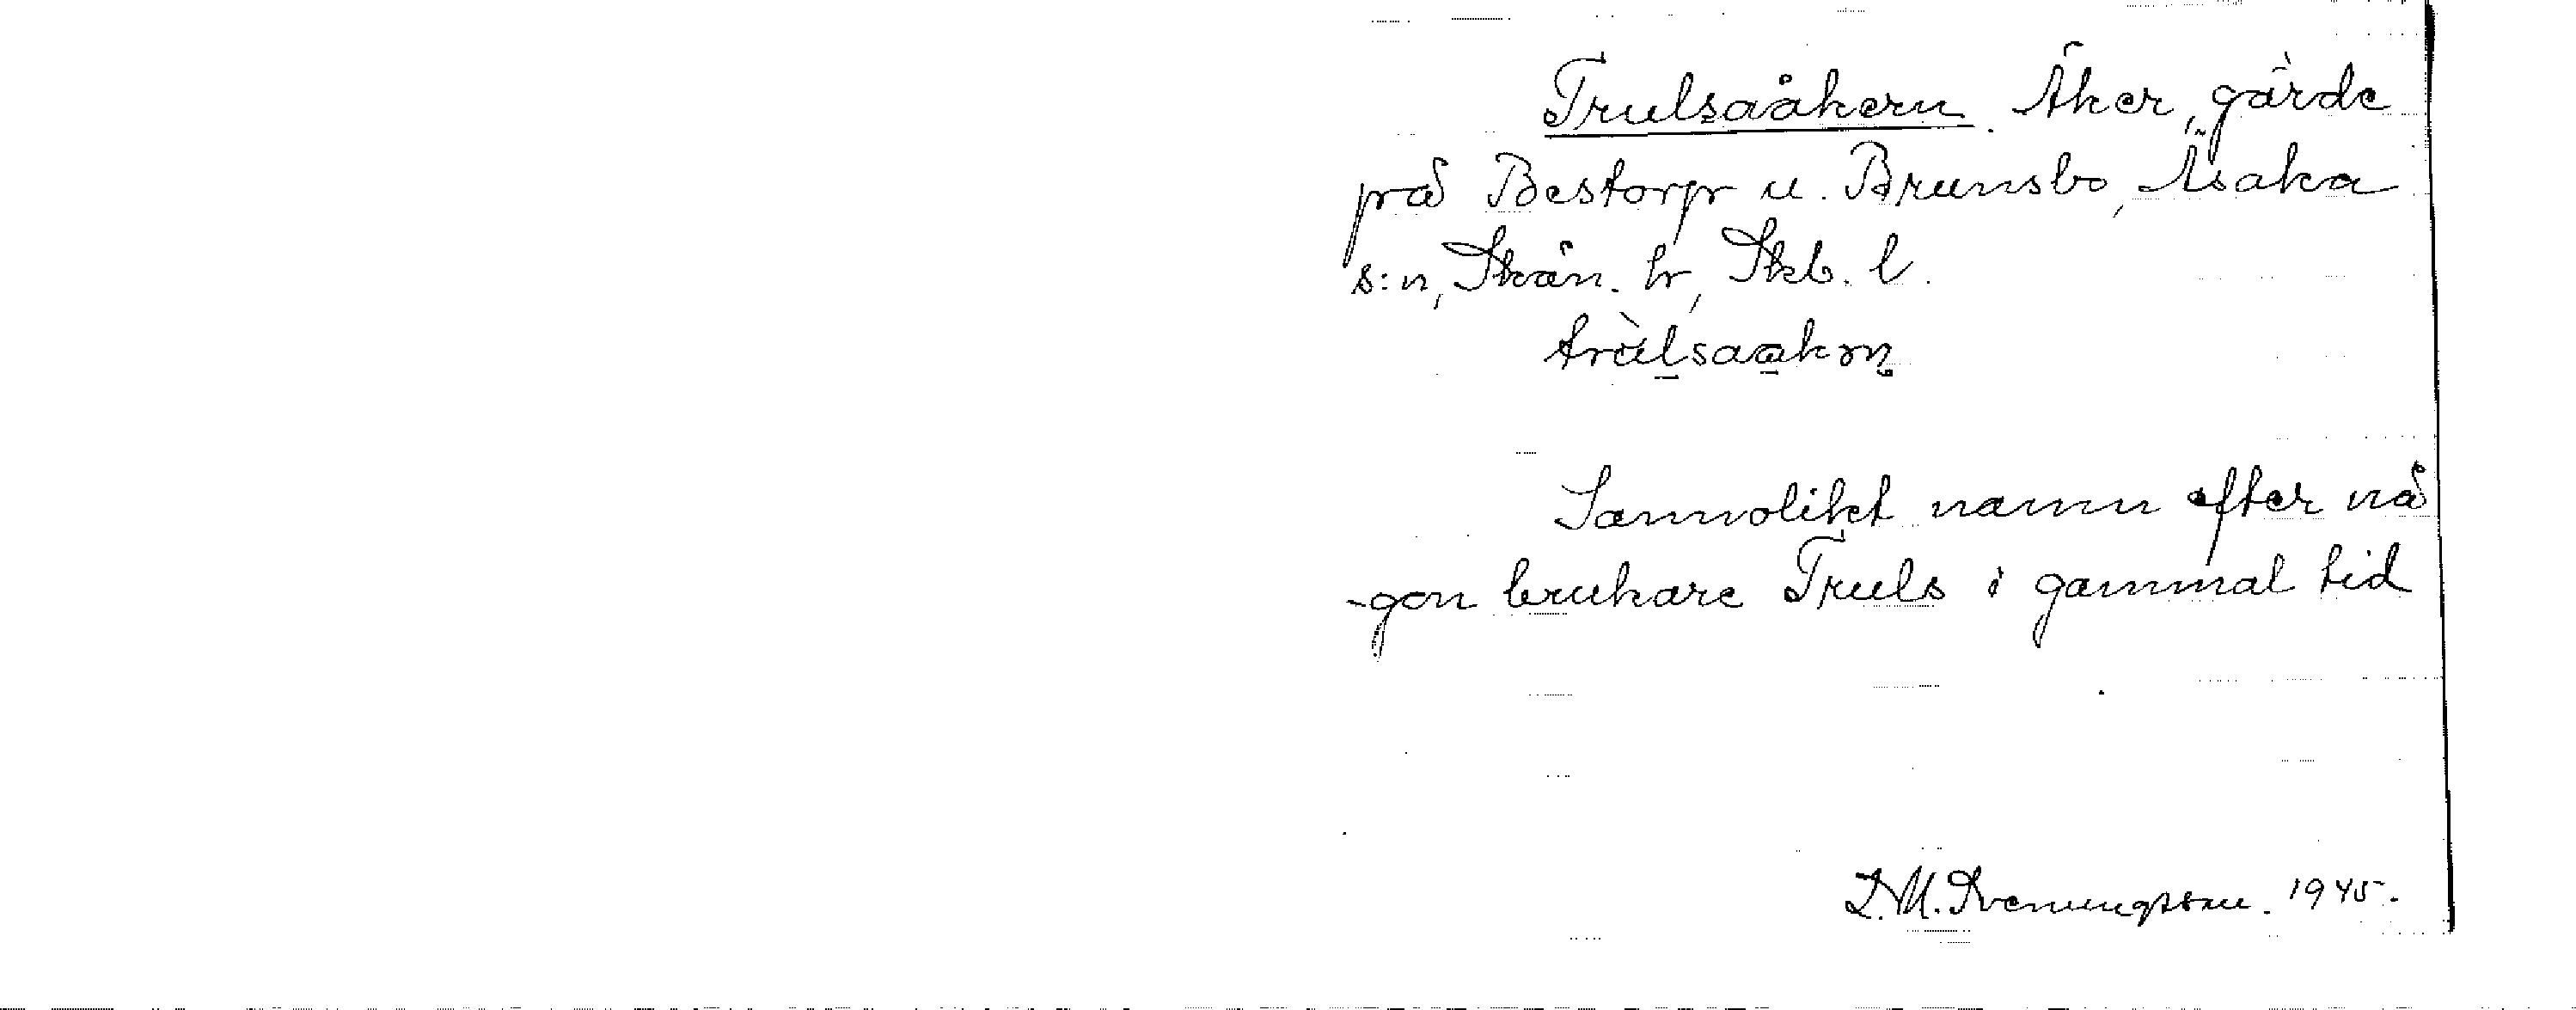 Trulsaåkern. Åker, gärde
på Bestorp u. Brunsbo, Åsaka
s:n, Skån. hr, Skb. l.
Sannolikt namn efter nå
-gon brukare Truls i gammal tid
L.M. Svenungsson. 1945.